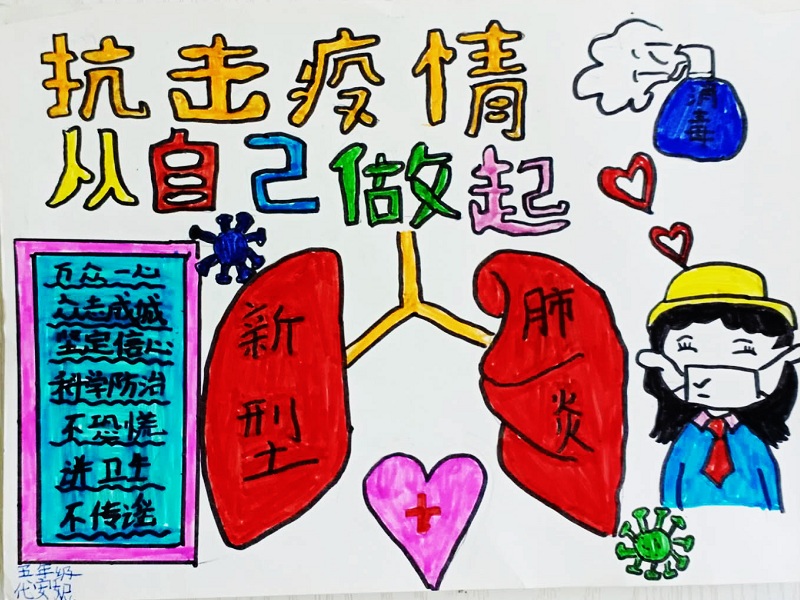 抗击疫情
从自己做起
消毒
万众一心
众志成城
坚定信心
科学防治
不恐慌
讲卫生
不传谣
新型
肺炎
五年级